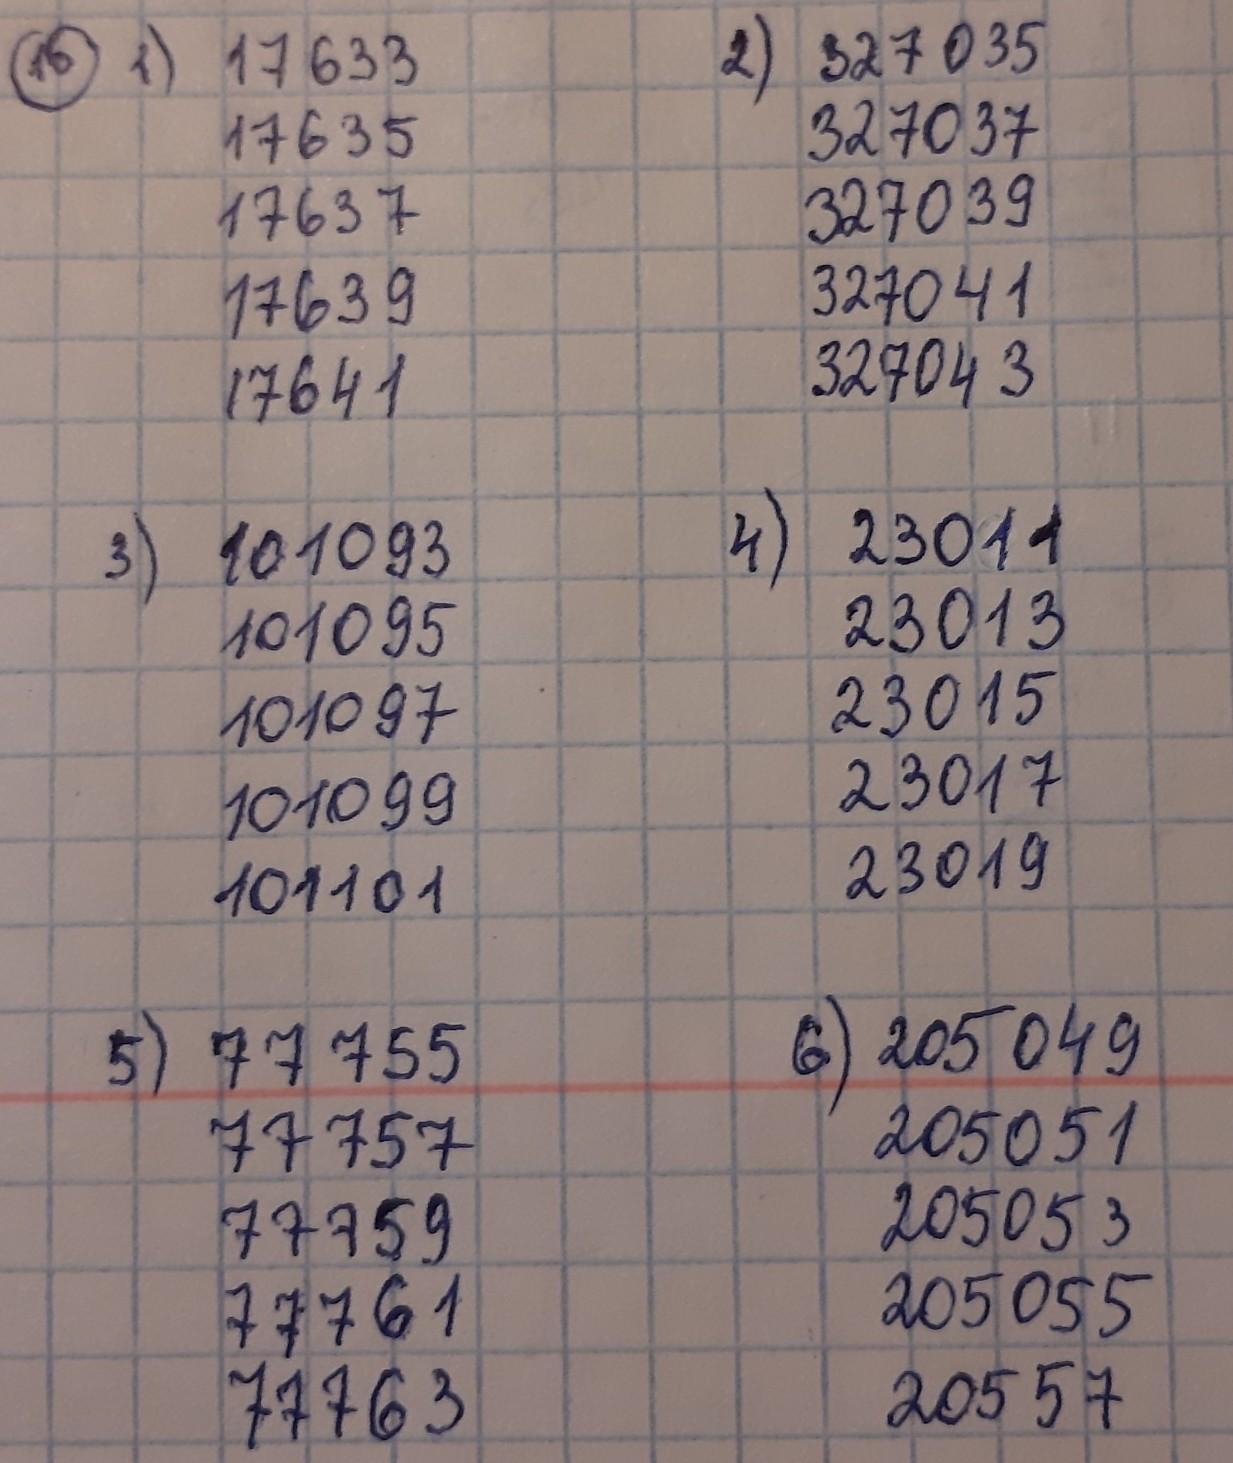 16 1) 17633
17635
17637
17639
17641
2) 327035
327037
327039
327041
327043
3) 101093
101095
101097
101099
101101
4) 23011
23013
23015
23017
23019
5) 77755
77757
77759
77761
77763
6) 205049
205051
205053
205055
20557